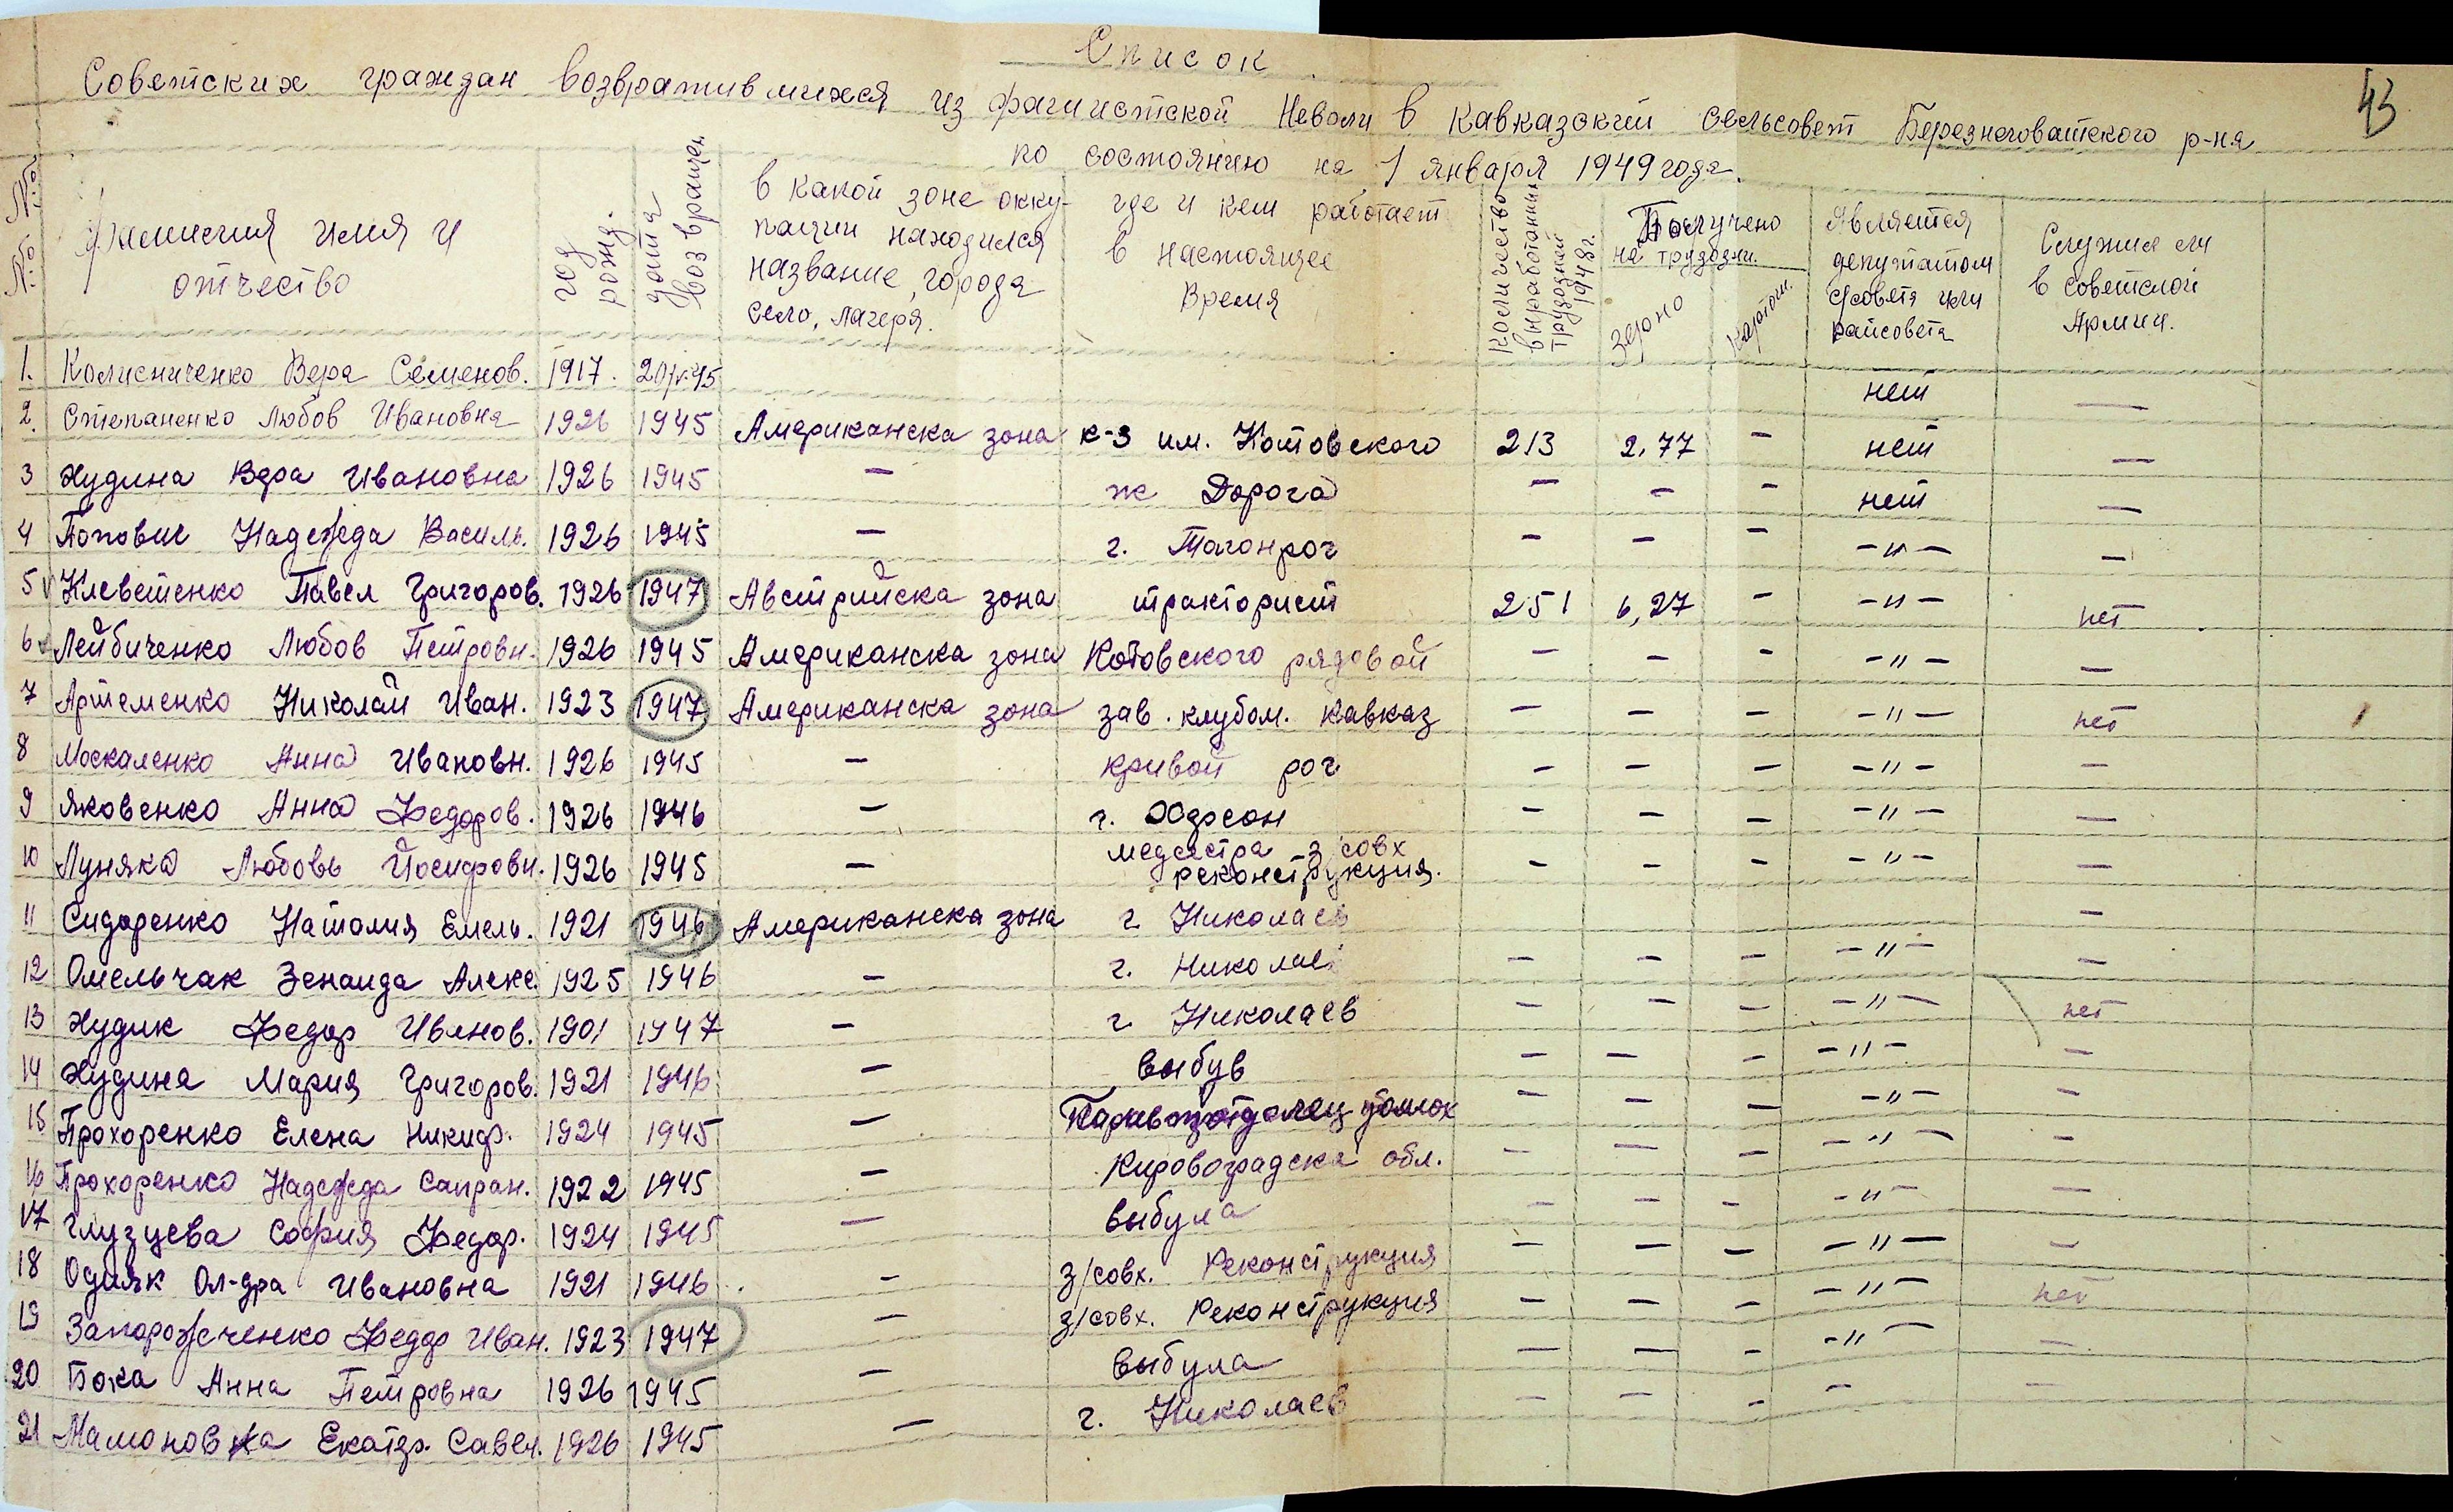 Список
43
Советских граждан возвратившихся из фашистской Неволи в Кавказский сельсовет Березнеговатского р-на
по состоянию на 1 января 1949 года.
№ № Фамилия имя и отчество
год рожд.
дата возвращен.
в какой зоне окку-
пации находился
название, города
село, лагеря.
где и кем работает
в настоящее
Время
Количество
выработанных
трудодней
1948г.
Получено
на трудодни.
зерно
картош.
Является
депутатом
с/совета или
райсовета
Служил ли
в советской
Армии.
1. Колисниченко Вера Семенов. 1917. нет —
2. Степаненко Любов Ивановна 1926 1945 Американска зона к-з им. Котовского 213 2,77 — нет —
3 Худина Вера Ивановна 1926 1945 — ж Дорога — — — нет —
4 Попович Надежда Василь. 1926 1945 — г. Тагонрог — — — —"— —
5 V Клеветенко Павел Григоров. 1926 1947 Австрийска зона тракторист 251 6,27 — —"— нет
6 Лейбиченко Любов Петровн. 1926 1945 Американска зона Котовского рядовой — — — —"— —
7 Артеменко Николай Иван. 1923 1947 Американска зона зав. клубом. Кавказ — — — —"— нет
8 Москаленко Анна Ивановн. 1926 1945 — кривой рог — — — —"— —
9 Яковенко Анна Федоров. 1926 1946 — г. Херсон — — — —"— —
10 Луняка Любовь Йосифовн. 1926 1945 — медсестра з/совх реконструкция. — — — —"— —
11 Сидоренко Наталия Емель. 1921 1946 Американска зона г Николаев —
12 Омельчак Зенаида Алекс. 1925 1946 — г. Николаев — — — —"— —
13 Худик Федор Иванов. 1901 1947 — г Николаев — — — —"— нет
14 Худина Мария Григоров. 1921 1946 — выбув — — — —"— —
15 Прохоренко Елена Никиф. 1924 1945 — — — — —"— —
16 Прохоренко Надежда Сапрон. 1922 1945 — Кировоградска обл. — — — —"— —
17 Глузцева София Федор. 1924 1945 — выбула — — — —"— —
18 Одияк Ол-дра Ивановна 1921 1946 — з/совх. Реконструкция — — — —"— —
19 Запорожченко Федор Иван. 1923 1947 — з/совх. Реконструкция — — — —"— нет
20 Бока Анна Петровна 1926 1945 — выбула — — — —"— —
21 Мамоновка Екатер. Савел. 1926 1945 — г. Николаев — — — — —